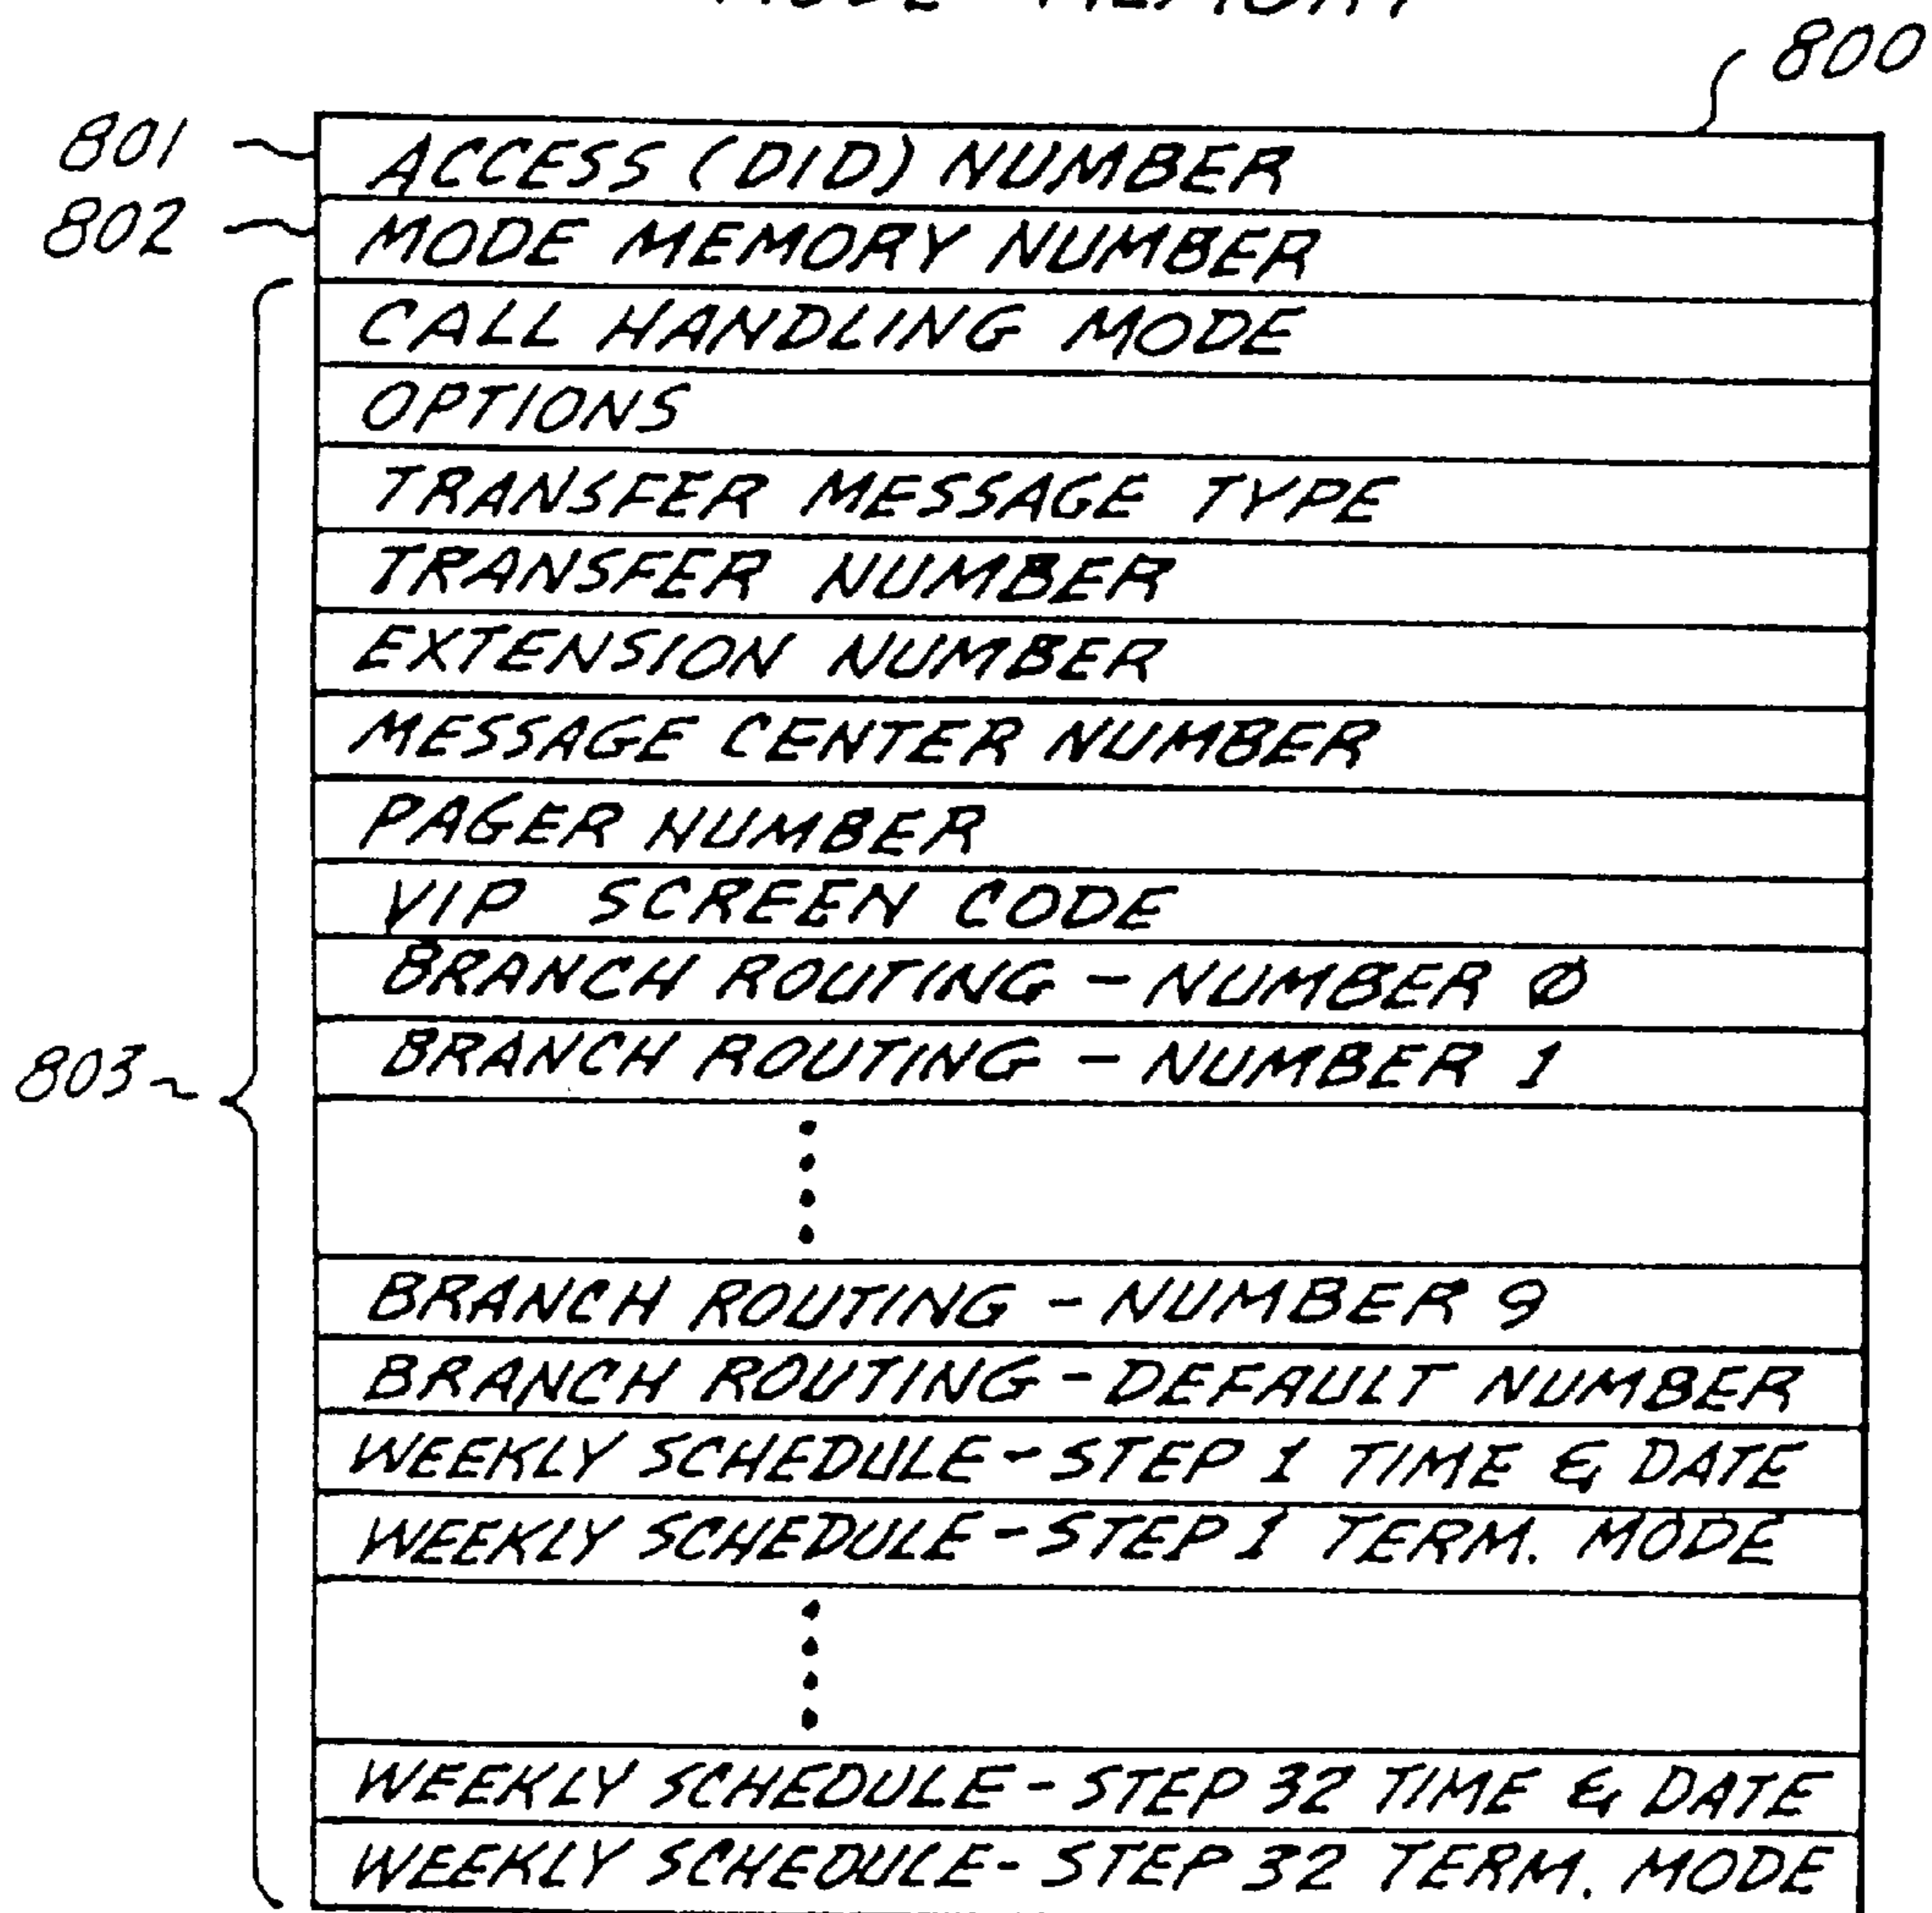 800
801 ACCESS (DID) NUMBER
802 MODE MEMORY NUMBER
CALL HANDLING MODE
OPTIONS
TRANSFER MESSAGE TYPE
TRANSFER NUMBER
EXTENSION NUMBER
MESSAGE CENTER NUMBER
PAGER NUMBER
VIP SCREEN CODE
BRANCH ROUTING - NUMBER Ø
803 BRANCH ROUTING - NUMBER 1
BRANCH ROUTING - NUMBER 9
BRANCH ROUTING - DEFAULT NUMBER
WEEKLY SCHEDULE - STEP 1 TIME & DATE
WEEKLY SCHEDULE - STEP 1 TERM. MODE
WEEKLY SCHEDULE - STEP 32 TIME & DATE
WEEKLY SCHEDULE - STEP 32 TERM. MODE